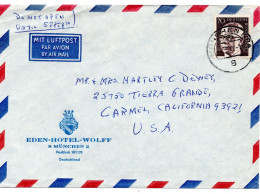 DO NOT OPEN
UNTIL
MIT LUFTPOST
PAR AVION
BY AIR MAIL
70
8
MR. & MRS. HARTLEY C. DEWEY,
25750 TIERRA GRANDE,
CARMEL, CALIFORNIA 93921
U.S.A.
EDEN-HOTEL-WOLFF
8 MÜNCHEN 2
Postfach
Deutschland